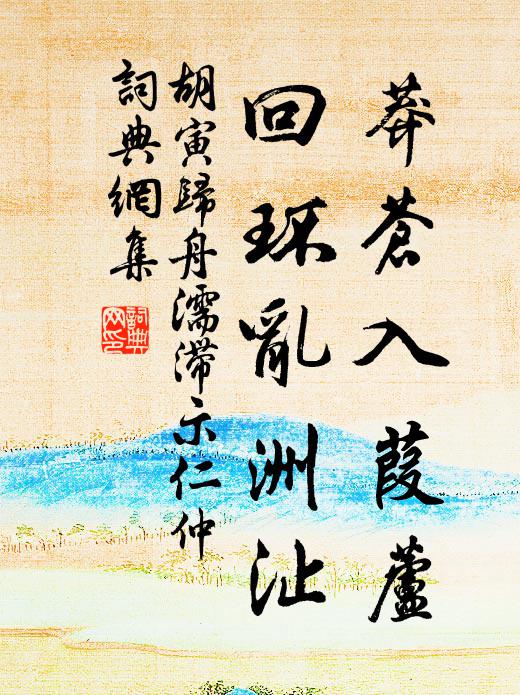 莽蒼入葭蘆
回環亂洲沚
胡寅歸舟濡滯示仁仲
詞典網集
詞典網印